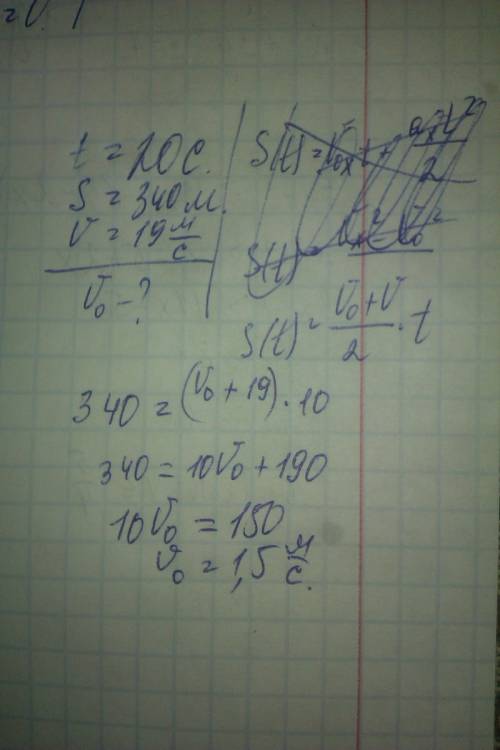 t = 20 с.
S = 340 м.
V = 19 м/с
V₀ - ?
S(t) = (V₀ + V)/2 · t
340 = (V₀ + 19) · 10
340 = 10V₀ + 190
10V₀ = 150
V₀ = 1,5 м/с.